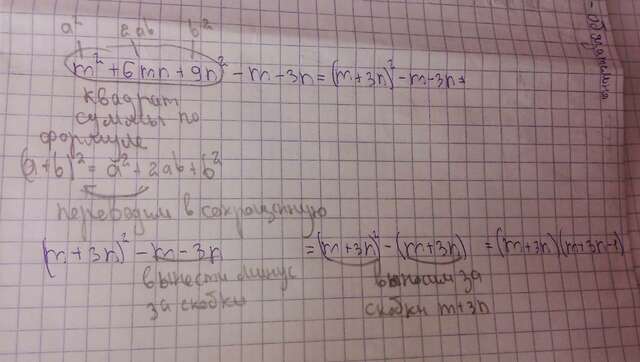 a² 2ab b²
m² + 6mn + 9n² - m - 3n = (m+3n)² - m - 3n =
квадрат
суммы по
формуле
(a+b)² = a² + 2ab + b²
переводим в сокращенную
(m+3n)² - m - 3n = (m+3n)² - (m+3n) = (m+3n)(m+3n-1)
вынести минус выносим за
за скобки скобки m+3n